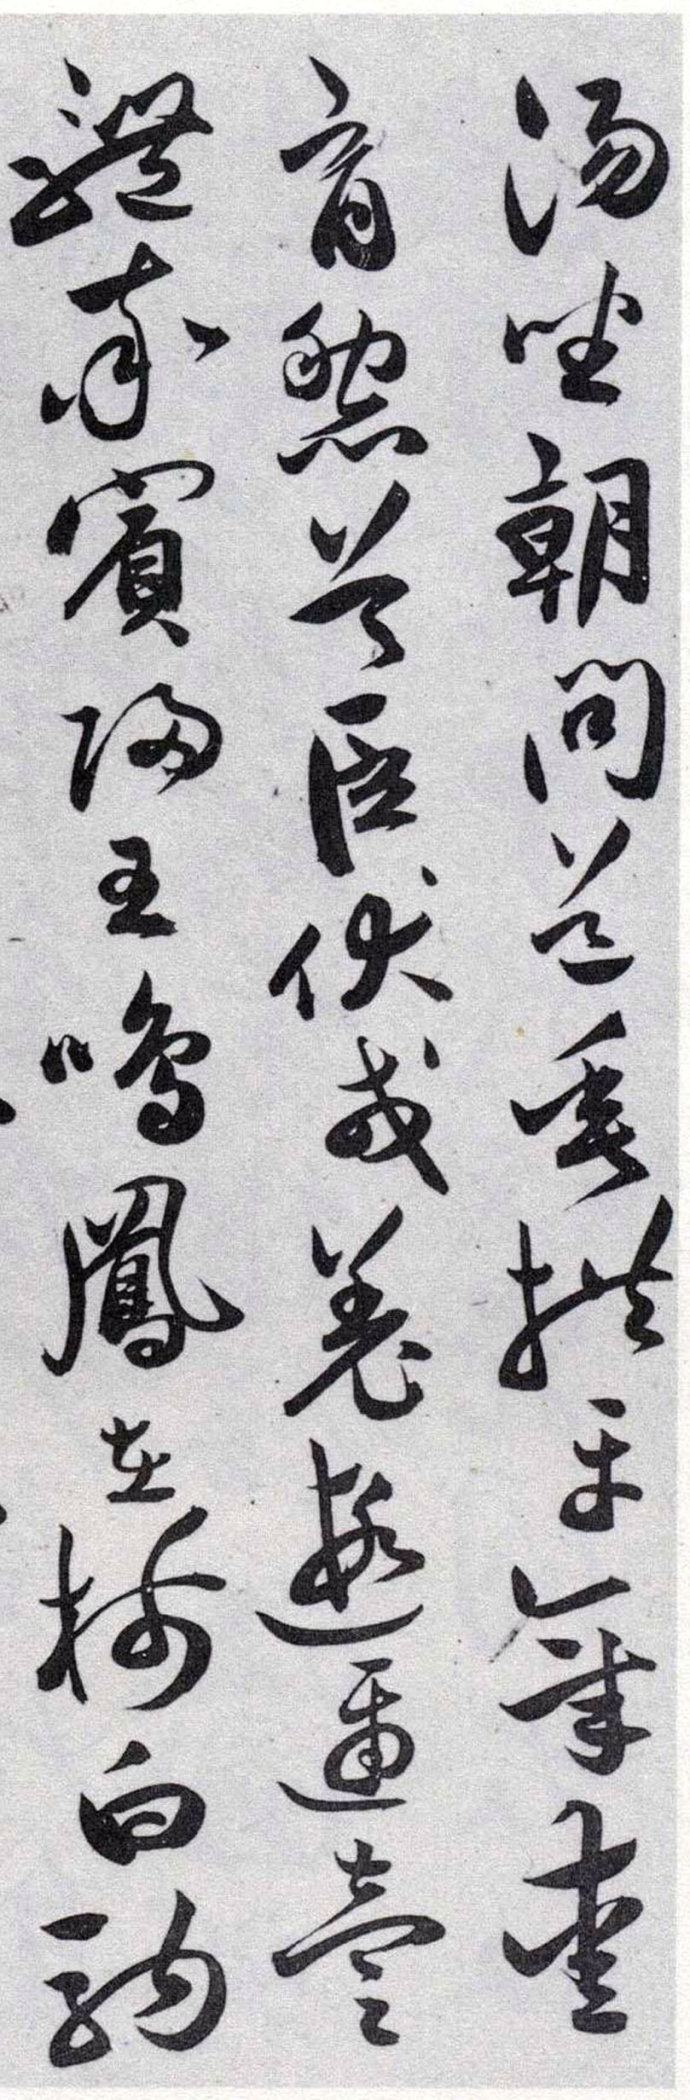 湯坐朝問道垂拱平章愛
育黎首臣伏戎羌遐邇壹
體率賓歸王鳴鳳在樹白駒